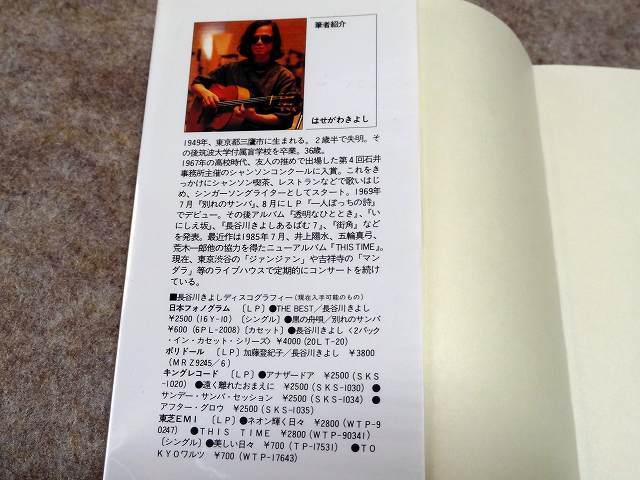 筆者紹介
はせがわきよし
1949年、東京都三鷹市に生まれる。２歳半で失明。そ
の後筑波大学付属盲学校を卒業。36歳。
1967年の高校時代、友人の推めで出場した第４回石井
事務所主催のシャンソンコンクールに入賞。これをき
っかけにシャンソン喫茶、レストランなどで歌いはじ
め、シンガーソングライターとしてスタート。1969年
７月『別れのサンバ』、８月にＬＰ『一人ぼっちの詩』
でデビュー。その後アルバム『透明なひととき』、『い
にしえ坂』、『長谷川きよしあるばむ７』、『街角』など
を発表。最近作は1985年７月、井上陽水、五輪真弓、
荒木一郎他の協力を得たニューアルバム『THIS TIME』。
現在、東京渋谷の「ジァンジァン」や吉祥寺の「マン
ダラ」等のライブハウスで定期的にコンサートを続け
ている。
■長谷川きよしディスコグラフィー（現在入手可能のもの）
日本フォノグラム ［ＬＰ］●THE BEST／長谷川きよし
¥2500（16Ｙ-10）［シングル］●黒の舟唄／別れのサンバ
¥600（6ＰL-2008）［カセット］●長谷川きよし〈2パック
・イン・カセット・シリーズ〉¥4000（20ＬＴ-20）
ポリドール ［ＬＰ］加藤登紀子／長谷川きよし ¥3800
（ＭＲＺ9245／６）
キングレコード ［ＬＰ］●アナザードア ¥2500（ＳＫＳ
-1020）●遠く離れたおまえに ¥2500（ＳＫＳ-1030）●
サンデー・サンバ・セッション ¥2500（ＳＫＳ-1034）●
アフター・グロウ ¥2500（ＳＫＳ-1035）
東芝ＥＭＩ ［ＬＰ］●ネオン輝く日々 ¥2800（ＷＴＰ-9
0247）●ＴＨＩＳ ＴＩＭＥ ¥2800（ＷＴＰ-90341）
［シングル］●美しい日々 ¥700（ＴＰ-17531）●ＴＯ
ＫＹＯワルツ ¥700（ＷＴＰ-17643）